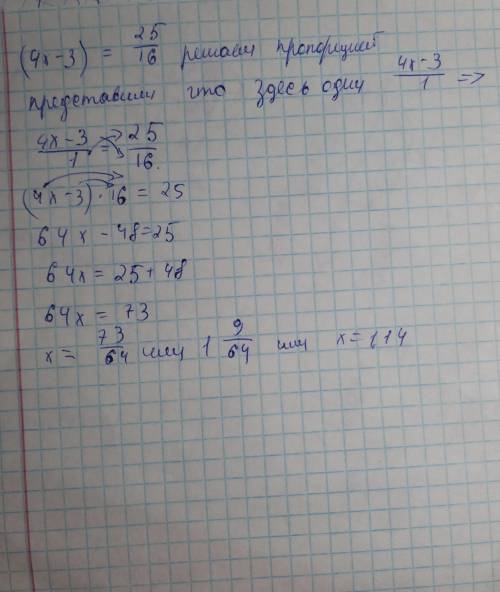 (4x-3) = 25/16 решаем пропорцией
представим что здесь один 4x-3/1 =>
4x-3/1 = 25/16.
(4x-3)·16 = 25
64x - 48=25
64x = 25+48
64x = 73
x = 73/64 или 1 9/64 или x=1,14